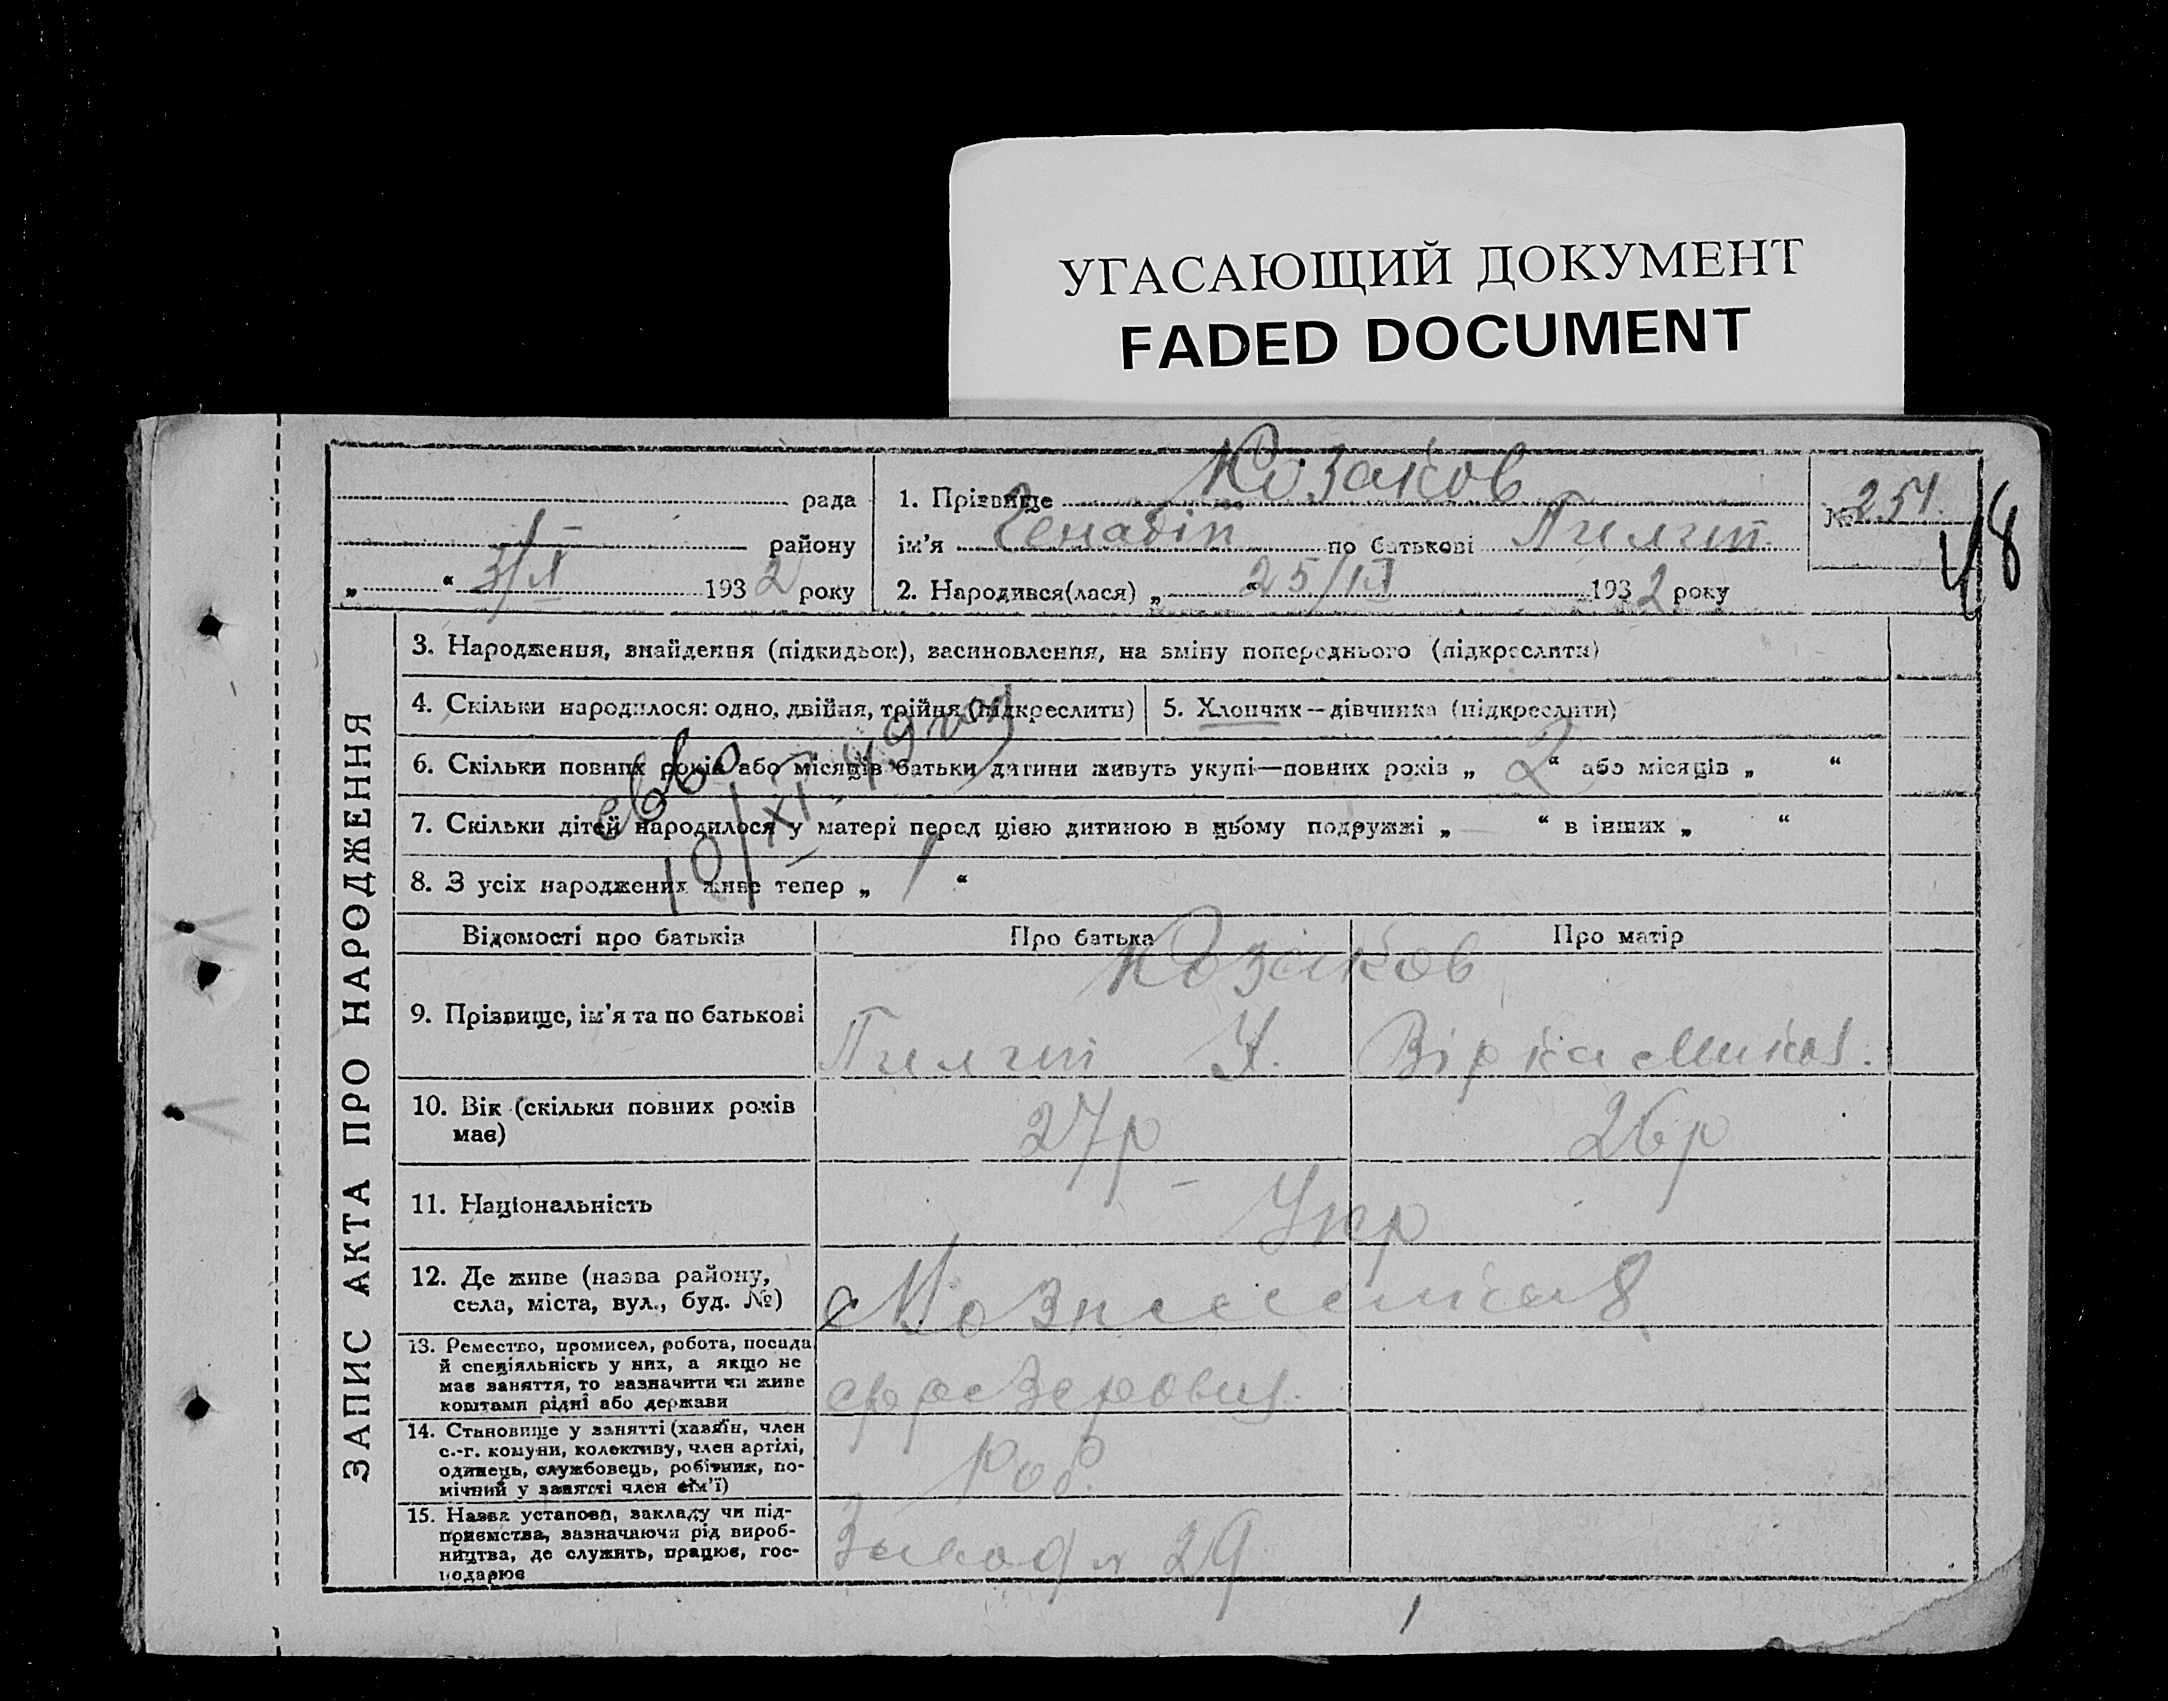 УГАСАЮЩИЙ ДОКУМЕНТ
FADED DOCUMENT
рада
1. Прізвище Козаков
№ 254.
48
району
ім'я Генадій по батькові Пилип.
„ “ 3/X 1932 року
2. Народився(лася) „ “ 25/IX 1932 року
ЗАПИС АКТА ПРО НАРОДЖЕННЯ
3. Народження, знайдення (підкидьок), засиновлення, на зміну попереднього (підкреслити)
4. Скільки народилося: одно, двійня, трійня (підкреслити)
5. Хлопчик — дівчинка (підкреслити)
6. Скільки повних років або місяців батьки дитини живуть укупі—повних років „ 2 “ або місяців „ “
7. Скільки дітей народилося у матері перед цією дитиною в цьому подружжі „ — “ в інших „ “
8. З усіх народжених живе тепер „ 1 “
10/XI-49
Відомості про батьків
Про батька
Про матір
Козаков
9. Прізвище, ім'я та по батькові
Пилип У.
Вірка Микол.
10. Вік (скільки повних років
має)
27р
26р
11. Національність
— Укр
12. Де живе (назва району,
села, міста, вул., буд. №)
Вознесенка 8
13. Ремество, промисел, робота, посада
й спеціяльність у них, а якщо не
має заняття, то зазначити чи живе
коштами рідні або держави
фрезеровщ.
14. Становище у занятті (хазяїн, член
с.-г. комуни, колективу, член артілі,
одинець, службовець, робітник, по-
мічний у занятті член сім'ї)
Роб.
15. Назва установи, закладу чи під-
приємства, зазначаючи рід вироб-
ництва, де служить, працює, гос-
подарює
Завод № 29